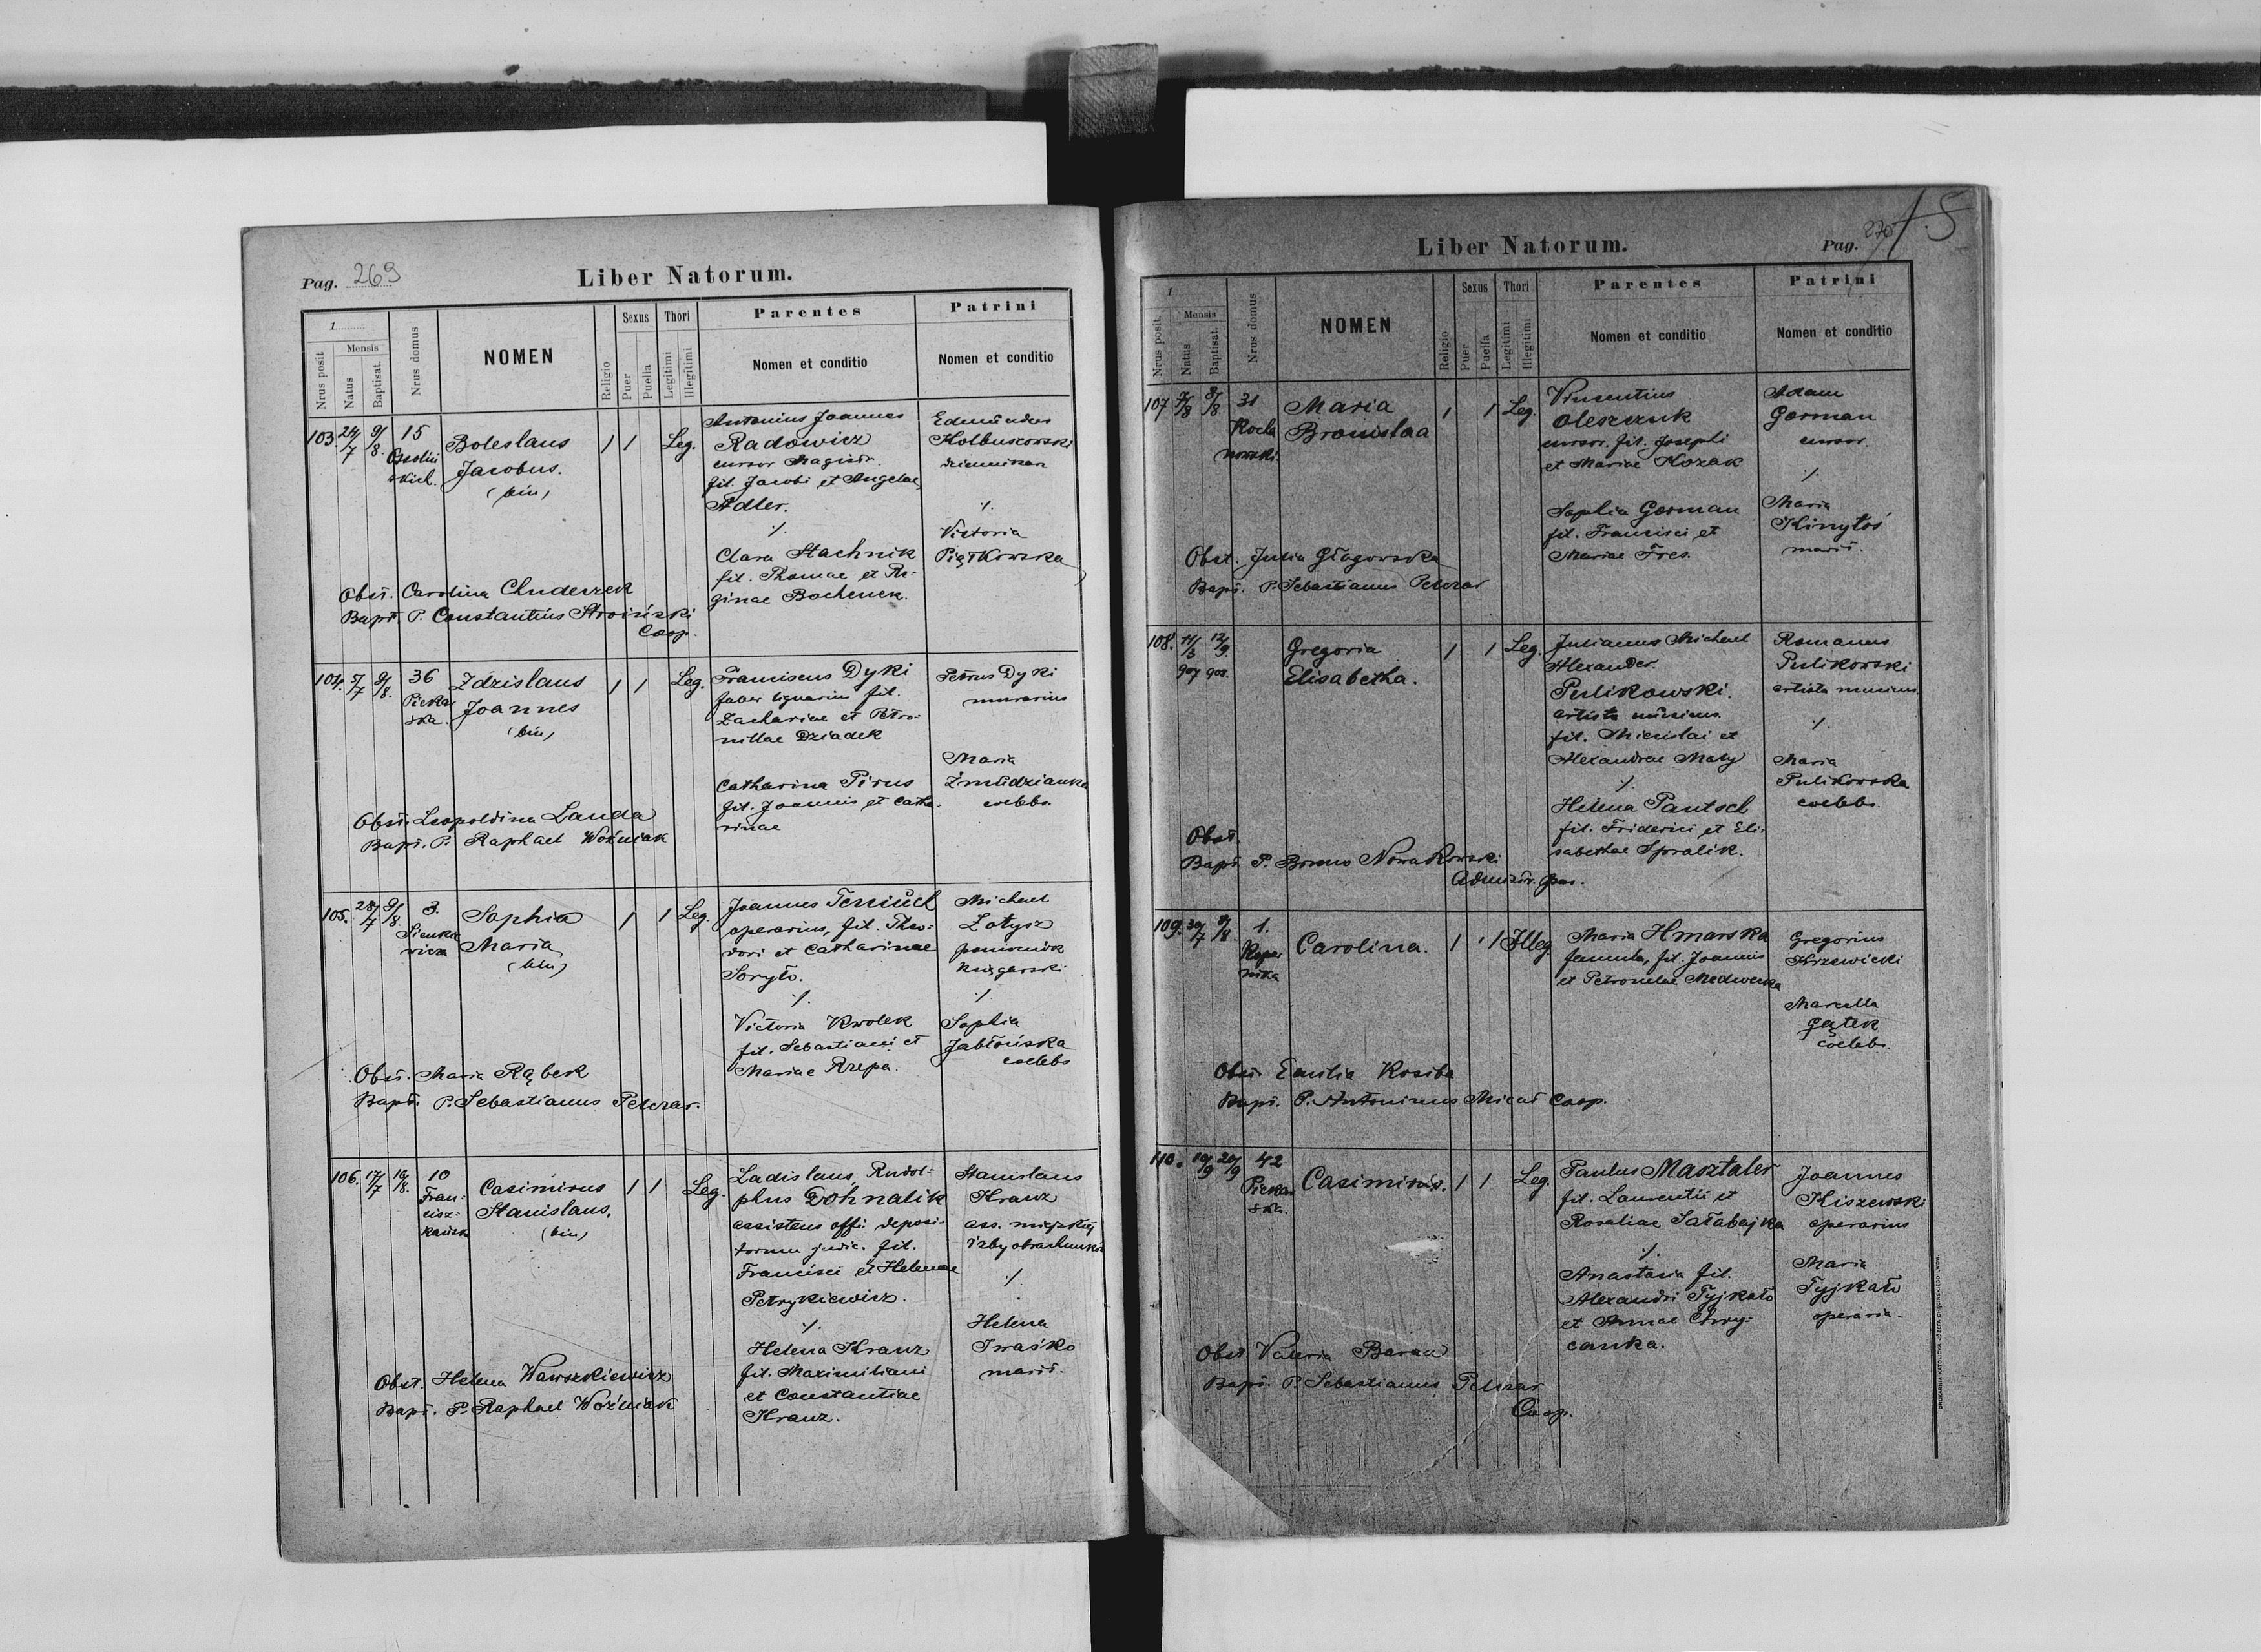 Pag. 269
Liber Natorum.
1
Nrus posit.
Mensis
Natus
Baptisat.
Nrus domus
NOMEN
Religio
Sexus
Puer
Puella
Thori
Legitimi
Illegitimi
Parentes
Nomen et conditio
Patrini
Nomen et conditio
103. 24/7 9/8. 15
Boleslaus
Jacobus.
(bin)
1 1 Leg.
Antonius Joannes
Radowicz
cursor Magistr.
fil. Jacobi et Angelae
Adler.
./.
Clara Stachnik
fil. Thomae et Re-
ginae Bochenek.
Edmundus
Kolbuszowski
dziennikarz
./.
Victoria
Piątkowska
Obst. Carolina Chuderzek
Bapt. P. Constantius Stroiński
Coop.
104. 5/7 9/8. 36
Piekar
ska.
Zdzislaus
Joannes
(bin)
1 1 Leg.
Franciscus Dyki
faber lignarius fil.
Zachariae et Petro-
nillae Dziadek
Catharina Pirus
fil. Joannis et Catha-
rinae
Petrus Dyki
murarius
Maria
Żmudzianka
coelebs.
Obst. Leopoldina Landa
Bapt. P. Raphael Woźniak
105. 28/7 9/8. 3.
Sienkie
wicza
Sophia
Maria
(bin)
1 1 Leg.
Joannes
operarius, fil. Theo-
dori et Catharinae
Soryło.
./.
Victoria Kwolek
fil. Sebastiani et
Mariae Rzepa.
Michael
Łotysz
pomocnik
księgarski
./.
Sophia
Jabłońska
coelebs
Obst. Maria Rąbek
Bapt. P. Sebastianus Pelczar.
106. 17/7 10/8. 10
Fran-
cisz-
kańska
Casimirus
Stanislaus.
(bin)
1 1 Leg.
Ladislaus Rudol-
phus Dohnalik
assistens offi. deposi-
torum judic. fil.
Francisci et Helenae
Petrykiewicz.
./.
Helena Kranz
fil. Maximiliani
et Constantiae
Kranz.
Stanislaus
Kranz
ass. miejskiej
izby obrachunk.
./.
Helena
Iwaśko
marit.
Obst. Helena Wawszkiewicz
Bapt. P. Raphael Woźniak
Liber Natorum.
Pag. 270
15
1
Nrus posit.
Mensis
Natus
Baptisat.
Nrus domus
NOMEN
Religio
Sexus
Puer
Puella
Thori
Legitimi
Illegitimi
Parentes
Nomen et conditio
Patrini
Nomen et conditio
107 8/8 31
Kocha
nowski.
Maria
Bronislaa
1 1 Leg.
Vincentius
Oleszczuk
cursor. fil. Josephi
et Mariae Kozak
Sophia Gorman
fil. Francisci et
Mariae Fres.
Adam
Gorman
cursor.
./.
Maria
Kinytoś
marit.
Obst. Julia Głogowska
Bapt. P. Sebastianus Pelczar
108. 11/3 12/9.
907 908.
Gregoria
Elisabetha.
1 1 Leg.
Julianus Michael
Alexander
Pulikowski.
artista musicus.
fil. Miecislai et
Alexandrae Maty
./.
Helena Pantsch
fil. Friderici et Eli-
sabethae Spralik.
Romanus
Pulikowski
artista musicus.
./.
Maria
Pulikowska
coelebs.
Obst.
Bapt. P. Bruno Nowakowski
109. 30/7 8/8. 1.
Koper
nika
Carolina.
1 1 Illeg.
Maria Hmarska
famula, fil. Joannis
et Petronelae Medwecka
Gregorius
Krzewicki
Marcella
Gątek
coelebs.
Obst. Emilia Kosiba
Bapt. P. Antoninus Micał Coop.
110. 19/9 20/9 42
Piekar
ska.
Casimirus.
1 1 Leg.
Paulus Masztaler
fil. Laurentii et
Rosaliae Sałabajka
./.
Anastasia fil.
Alexandri Tyjkało
et Annae Chry-
canka.
Joannes
Kiszewski
operarius
Maria
Tyjkało
operaria.
Obst. Valeria Baran
Bapt. P. Sebastianus Pelczar
Coop.